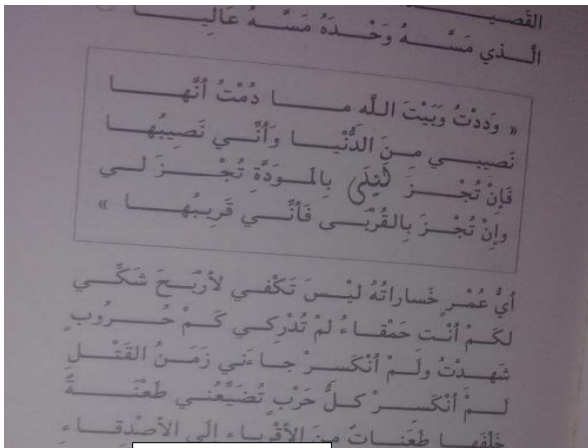 القَصِيـ
الَّـذي مَسَّـــهُ وَحْـدَهُ مَسَّـهُ عَالِيــا
« وَدِدْتُ وَبَيْتَ اللَّه مـــــا دُمْتُ أَنَّهــا
نَصيبـي مـنَ الدُّنْيـــا وَأَنَّــي نَصِيبُهــا
فَإِنْ تُجْــزَ لَيْلَى بِالمَـودَّةِ تُجْـــزَ لــي
وإِنْ تُجْــزَ بِالقُرْبَـى فَأَنَّــي قَرِيبُهـا »
أَيُّ عُمْـرٍ خَساراتُهُ لَيْـسَ تَكْفـي لأرْبَـحَ شَكِّـي
لكَـمْ أَنْـت حَمْقـاءُ لَمْ تُدْرِكـي كَـمْ حُـــرُوبٍ
شَهـدْتُ ولَــمْ أَنْكَسـرْ جـاءَنـي زَمَـنُ القَتْـلِ
لَــمْ أَنْكَســرْ كـلُّ حَرْبٍ تُضَيِّعُنـي طَعْنَــةً
خَلْفَهـا طَعَنَـاتٌ مِـنَ الأَقْربـاء إلى الأَصْدِقـاءِ